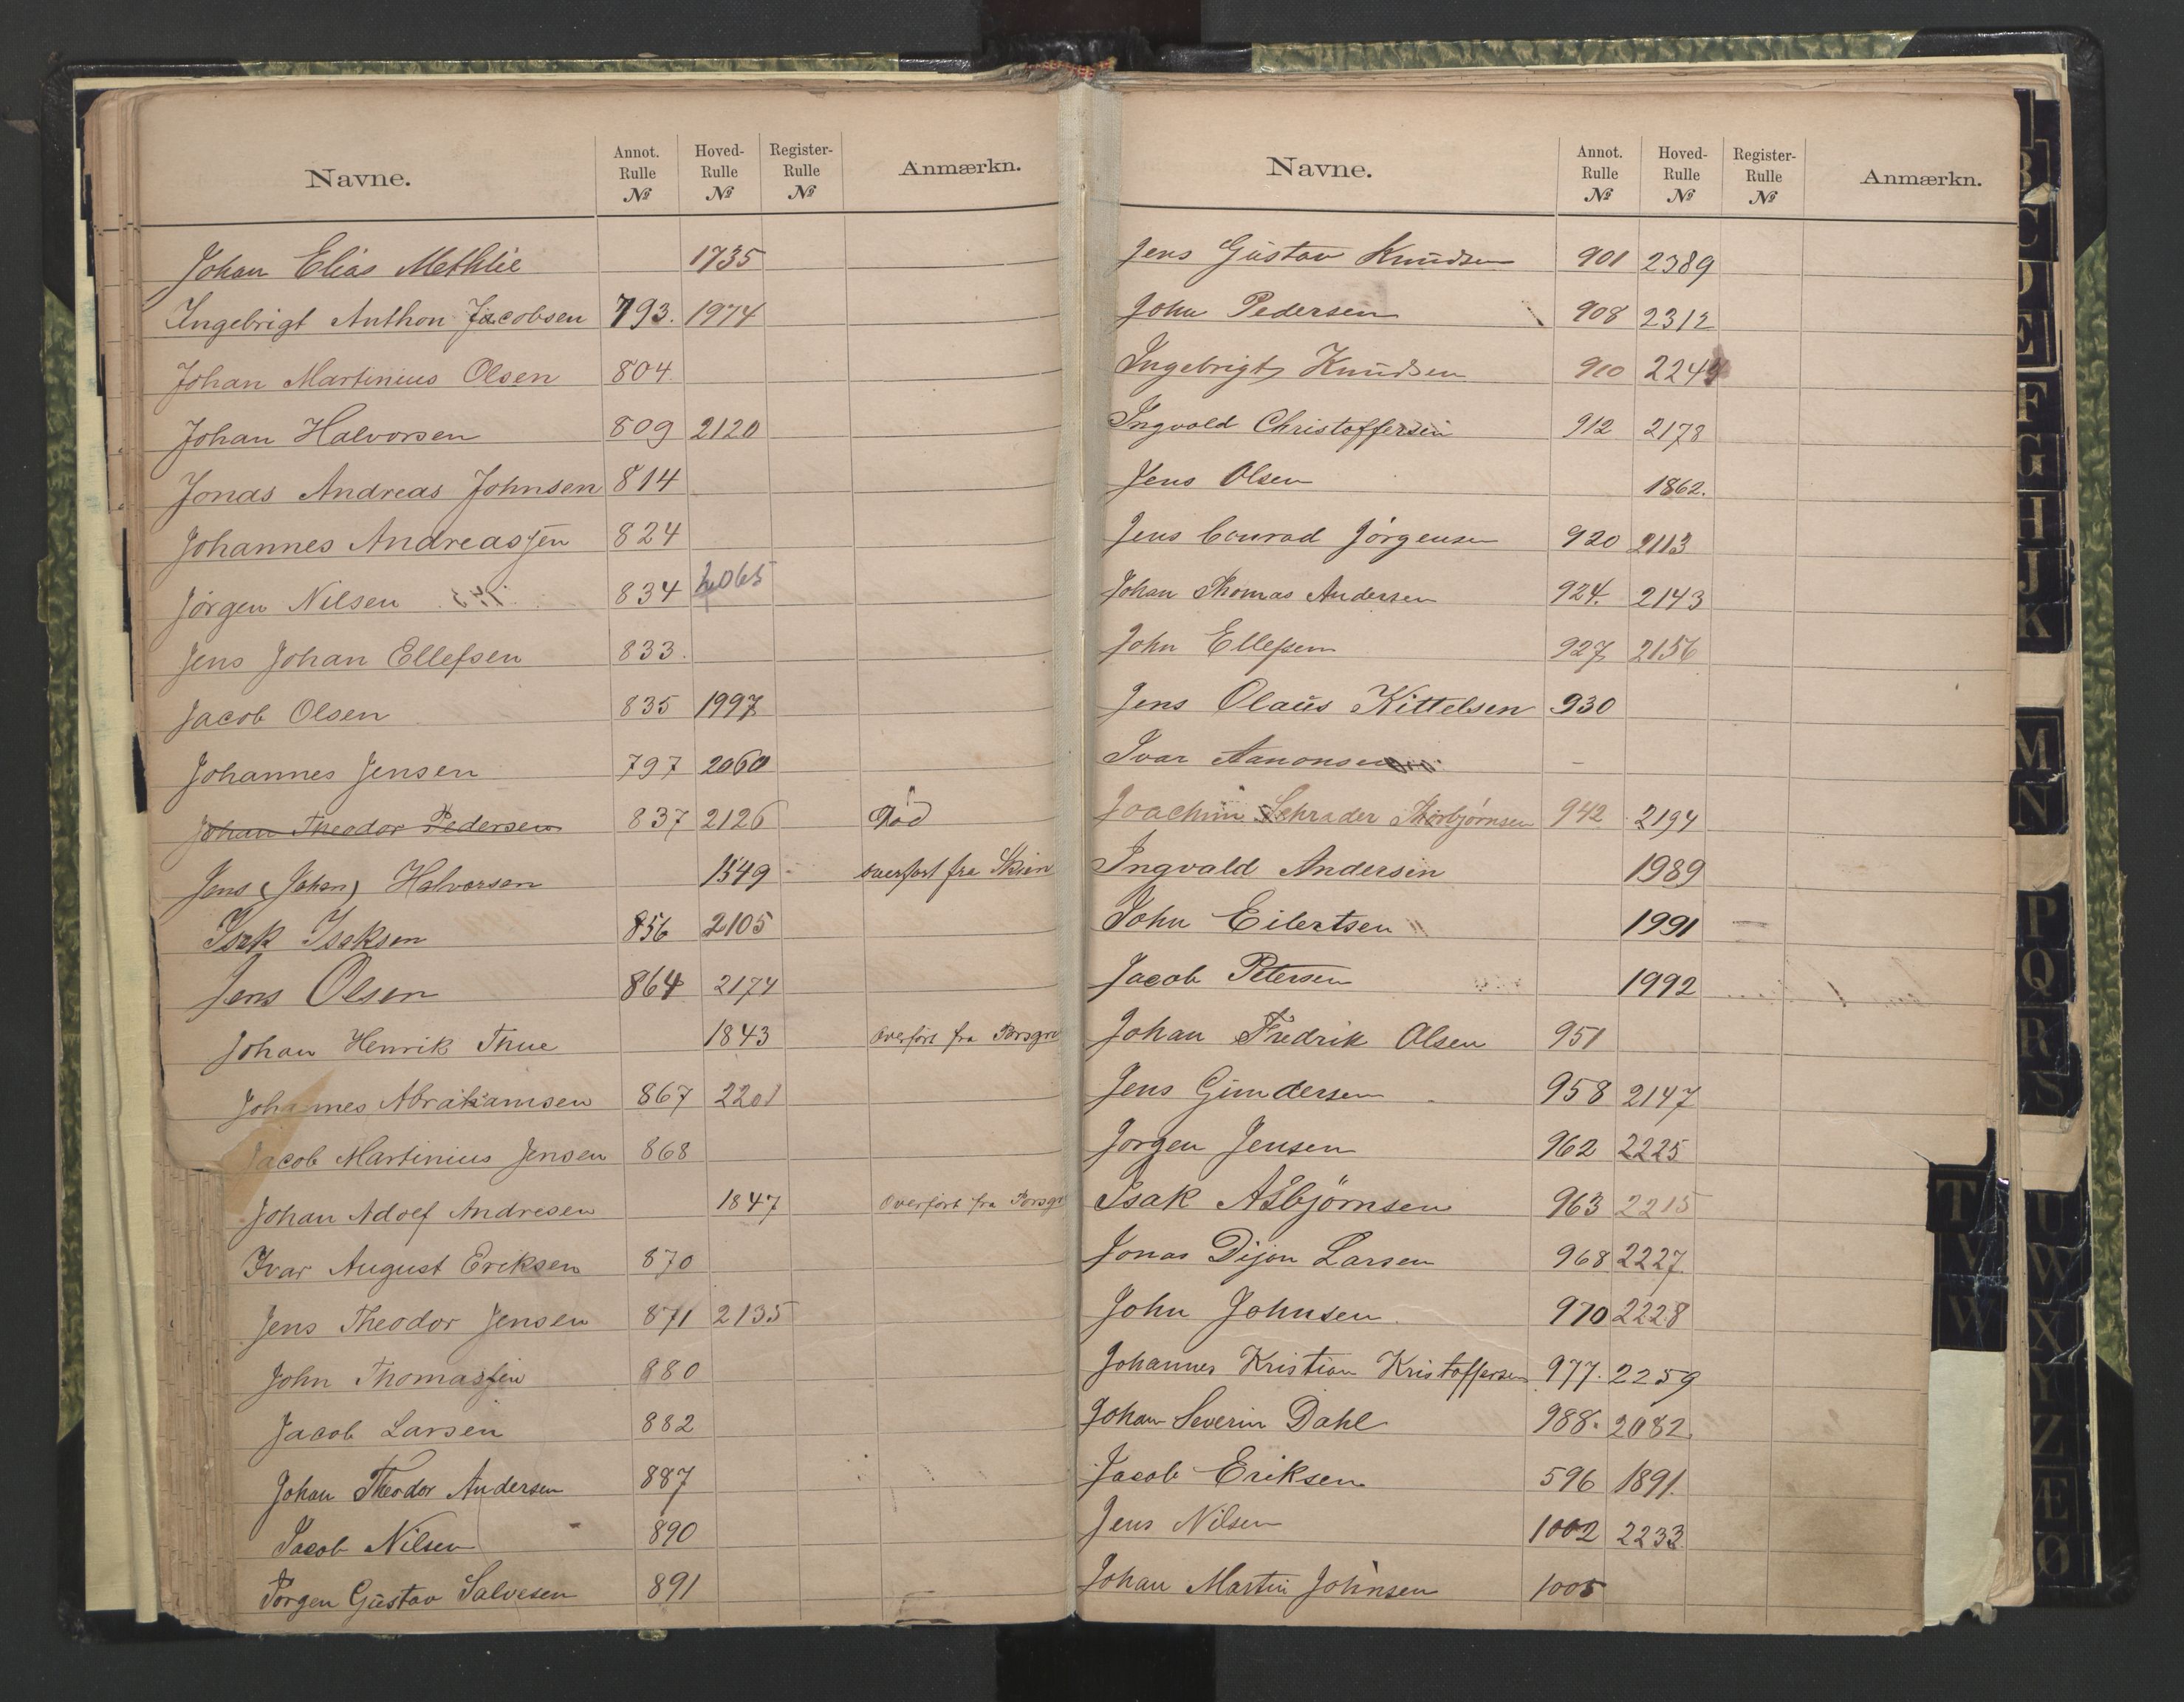 Navne. Annot. Rulle № Hoved- Rulle № Register- Rulle № Anmærkn.
Johan Elias Methlie 1735
Ingebrigt Anthon Jacobsen 793. 1974
Johan Martinius Olsen 804
Johan Halvorsen 809 2120
Jonas Andreas Johnsen 814
Johannes Andreassen 824
Jörgen Nilsen 834 2065
Jens Johan Ellefsen 833.
Jacob Olsen 835 1997
Johannes Jensen 797 2060
Johan Theodor Pedersen 837 2126 Död
Jens (Johan) Halvorsen 1549 overfört fra Skien
Isak Isaksen 856 2105
Jens Olsen 864 2174
Johan Henrik Thue 1843 Overfört fra Porsgr
Johannes Abrahamsen 867 2201
Jacob Martinius Jensen 868
Johan Adolf Andresen 1847 Overfört fra Porsgr
Ivar August Eriksen 870
Jens Theodor Jensen 871 2135
John Thomassen 880
Jacob Larsen 882
Johan Theodor Andersen 887
Jacob Nilsen 890
Jörgen Gustav Salvesen 891
Navne. Annot. Rulle № Hoved- Rulle № Register- Rulle № Anmærkn.
Jens Gustav Knudsen 901 2389
John Pedersen 908 2312
Ingebrigt Knudsen 910 2244
Ingvald Christoffersen 912 2178
Jens Olsen 1862.
Jens Conrad Jörgensen 920 2113
Johan Thomas Andersen 924. 2143
John Ellefsen 927 2156
Jens Olaus Kittelsen 930
Ivar Aanonsen –
Joachim Schrader Thorbjørnsen 942 2194
Ingvald Andersen 1989
John Eilertsen 1991 —
Jacob Petersen 1992
Johan Fredrik Olsen 951
Jens Gundersen 958 2147
Jorgen Jensen 962 2225
Isak Asbjörnsen 963 2215
Jonas Dijon Larsen 968 2227
John Johnsen 970 2228
Johannes Kristian Kristoffersen 977. 2259
Johan Severin Dahl 988. 2082.
Jacob Eriksen 596 1891.
Jens Nilsen 1002 2233
Johan Martin Johnsen 1005
B
C
D
E
F
G
I
J
K
M
N
P
Q
R
S
T
V
W
U
W
X
Y
Z
Æ
Ø